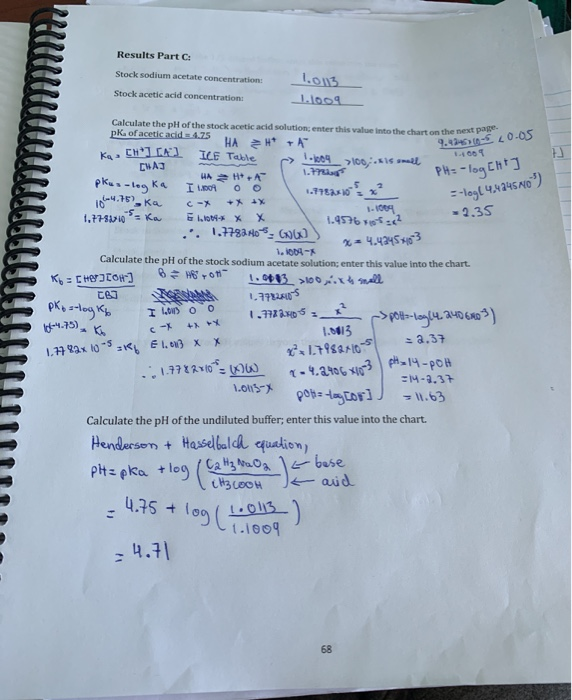 Results Part C:
Stock sodium acetate concentration: 1.0113
Stock acetic acid concentration: 1.1009
Calculate the pH of the stock acetic acid solution; enter this value into the chart on the next page.
pKa of acetic acid = 4.75
HA ⇌ H⁺ + A⁻
Ka = [H⁺][A⁻]
[HA]
ICE Table
HA ⇌ H⁺ + A⁻
I 1.1009 0 0
C -x +x +x
E 1.1009-x x x
pKa = -log Ka
10^(-4.75) = Ka
1.7782x10⁻⁵ = Ka
∴ 1.7782x10⁻⁵ = (x)(x)
1.1009-x
1.1009 >100, ∴ x is small
1.7782x10⁻⁵
1.7782x10⁻⁵ = x²
1.1009
1.9576 x10⁻⁵ = x²
x = 4.4245x10⁻³
<0.05
1.1009
pH = -log[H⁺]
= -log(4.4245x10⁻³)
= 2.35
Calculate the pH of the stock sodium acetate solution; enter this value into the chart.
Kb = [HB⁺][OH⁻]
[B]
B ⇌ HB⁺ + OH⁻
I 1.0113 0 0
C -x +x +x
E 1.0113 x x
pKb = -log Kb
10^(-4.75) = Kb
1.7782x10⁻⁵ = Kb
∴ 1.7782x10⁻⁵ = (x)(x)
1.0113-x
1.0113 >100, ∴ x is small
1.7782x10⁻⁵
1.7782x10⁻⁵ = x²
1.0113
x² = 1.7982x10⁻⁵
x = 4.2406x10⁻³
pOH = -log[OH⁻]
pOH = -log(4.2406x10⁻³)
= 2.37
pH = 14 - pOH
= 14 - 2.37
= 11.63
Calculate the pH of the undiluted buffer; enter this value into the chart.
Henderson + Hasselbalch equation,
pH = pKa + log (C2H3NaO2) ← base
CH3COOH ← acid
= 4.75 + log (1.0113)
1.1009
= 4.71
68